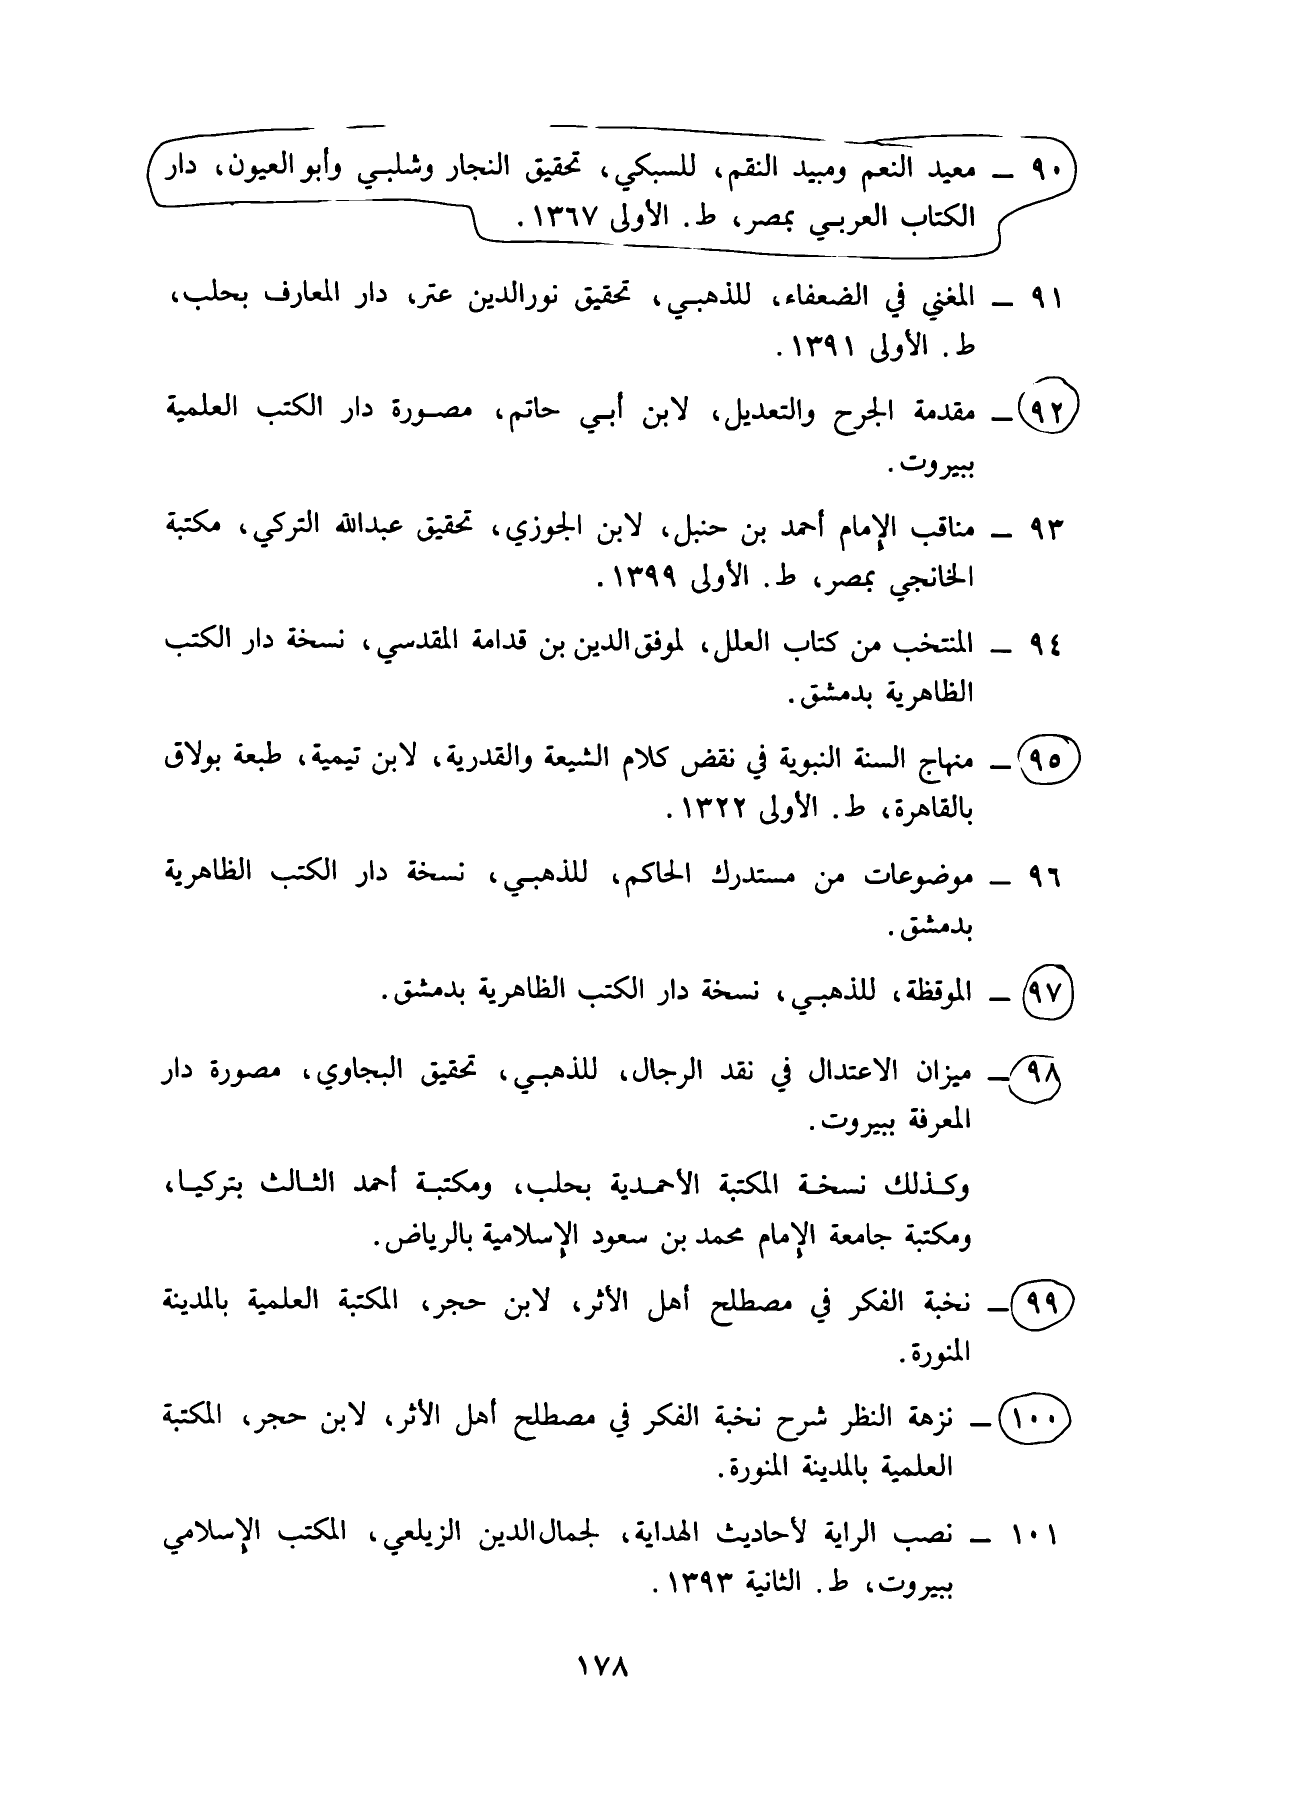 ٩٠ ــ معيد النعم ومبيد النقم، للسبكي، تحقيق النجار وشلبي وأبو العيون، دار
الكتاب العربي بمصر، ط. الأولى ١٣٦٧.
٩١ ــ المغني في الضعفاء، للذهبي، تحقيق نورالدين عتر، دار المعارف بحلب،
ط. الأولى ١٣٩١.
٩٢ ــ مقدمة الجرح والتعديل، لابن أبي حاتم، مصورة دار الكتب العلمية
ببيروت.
٩٣ ــ مناقب الإمام أحمد بن حنبل، لابن الجوزي، تحقيق عبدالله التركي، مكتبة
الخانجي بمصر، ط. الأولى ١٣٩٩.
٩٤ ــ المنتخب من كتاب العلل، لموفق الدين بن قدامة المقدسي، نسخة دار الكتب
الظاهرية بدمشق.
٩٥ ــ منهاج السنة النبوية في نقض كلام الشيعة والقدرية، لابن تيمية، طبعة بولاق
بالقاهرة، ط. الأولى ١٣٢٢.
٩٦ ــ موضوعات من مستدرك الحاكم، للذهبي، نسخة دار الكتب الظاهرية
بدمشق.
٩٧ ــ الموقظة، للذهبي، نسخة دار الكتب الظاهرية بدمشق.
٩٨ ــ ميزان الاعتدال في نقد الرجال، للذهبي، تحقيق البجاوي، مصورة دار
المعرفة ببيروت.
وكذلك نسخة المكتبة الأحمدية بحلب، ومكتبة أحمد الثالث بتركيا،
ومكتبة جامعة الإمام محمد بن سعود الإسلامية بالرياض.
٩٩ ــ نخبة الفكر في مصطلح أهل الأثر، لابن حجر، المكتبة العلمية بالمدينة
المنورة.
١٠٠ ــ نزهة النظر شرح نخبة الفكر في مصطلح أهل الأثر، لابن حجر، المكتبة
العلمية بالمدينة المنورة.
١٠١ ــ نصب الراية لأحاديث الهداية، لجمال الدين الزيلعي، المكتب الإسلامي
ببيروت، ط. الثانية ١٣٩٣.
١٧٨